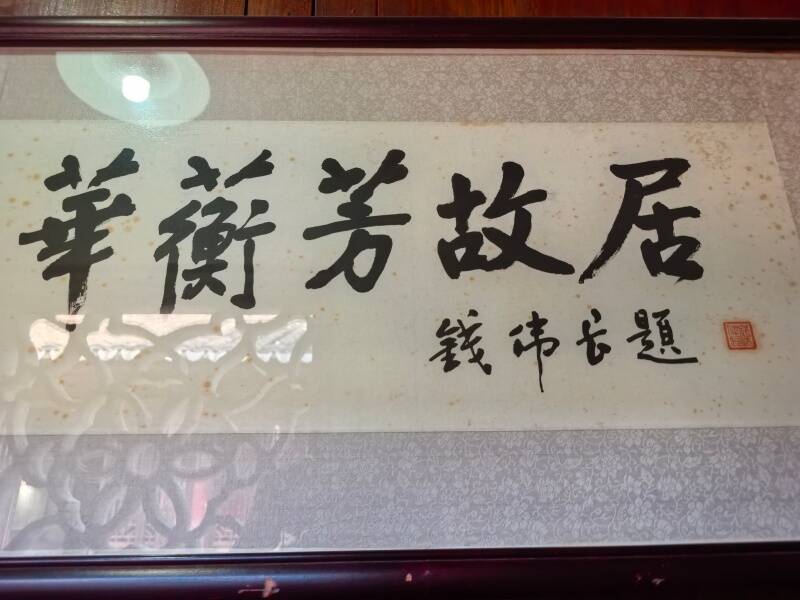 華蘅芳故居
錢伟长題